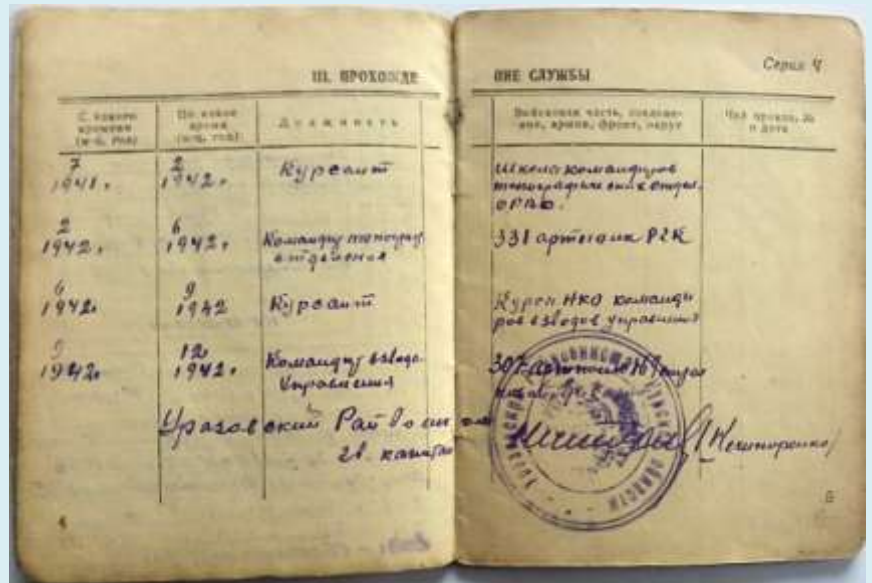 III. ПРОХОЖДЕ
НИЕ СЛУЖБЫ
Серия Ч
С какого времени (м-ц, год)
По какое время (м-ц, год)
Должность
Войсковая часть, соединение, армия, фронт, округ
Чей приказ, № и дата
7 1941. 2 1942. Курсант
Школа командиров
топографических отдел.
ОРАО.
2 1942. 6 1942. Командир топограф.
отделения
331 артполк РГК
6 1942. 9 1942 Курсант
Курсы НКО команди
ров взводов управления
9 1942. 12 1942. Командир взвода
управления
307
Уразовский Райвоенком
гв. капитан
(Нечипоренко)
4
5